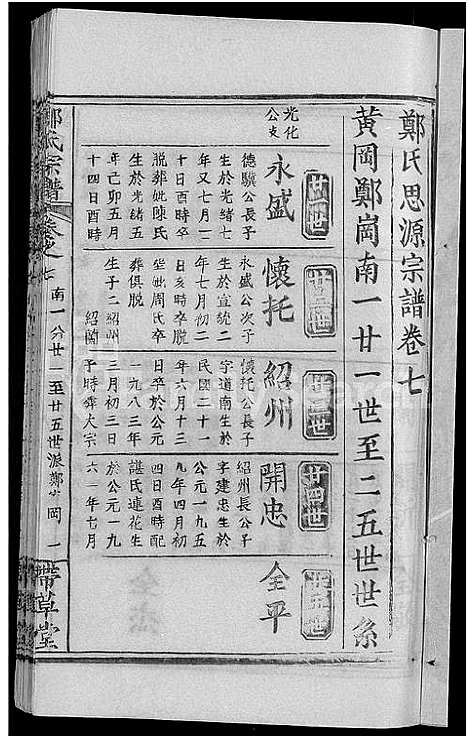 鄭氏思源宗譜卷七
黄岡鄭崗南一廿一世至二五世世系
廿一世
光化公支
永盛
德驥公長子
生於光緒七
年又七月二
十日酉時卒
脱葬妣陳氏
生於光緒五
年己卯五月
十四日酉時
廿二世
懷托
永盛公次子
生於宣統二
年七月初二
日亥時卒脱
塟妣周氏卒
葬俱脱
生子二紹州
紹蘭
廿三世
紹州
懷托公長子
字道南生於
民國二十一
年六月十三
日卒於公元
一九八三年
三月初三日
予時葬大宗
廿四世
開忠
紹州長公子
字建忠生於
公元一九五
九年四月初
四日酉時配
諶氏連花生
於公元一九
六一年七月
廿五世
全平
鄭氏宗譜
卷之七
南一分廿一至廿五世派鄭家岡
一
帶草堂